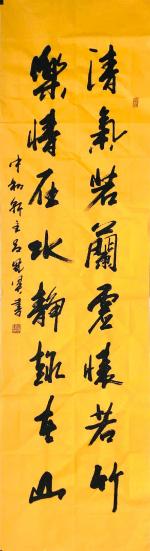 清氣若蘭虛懷若竹
樂情在水靜趣在山
中和軒主呂
書